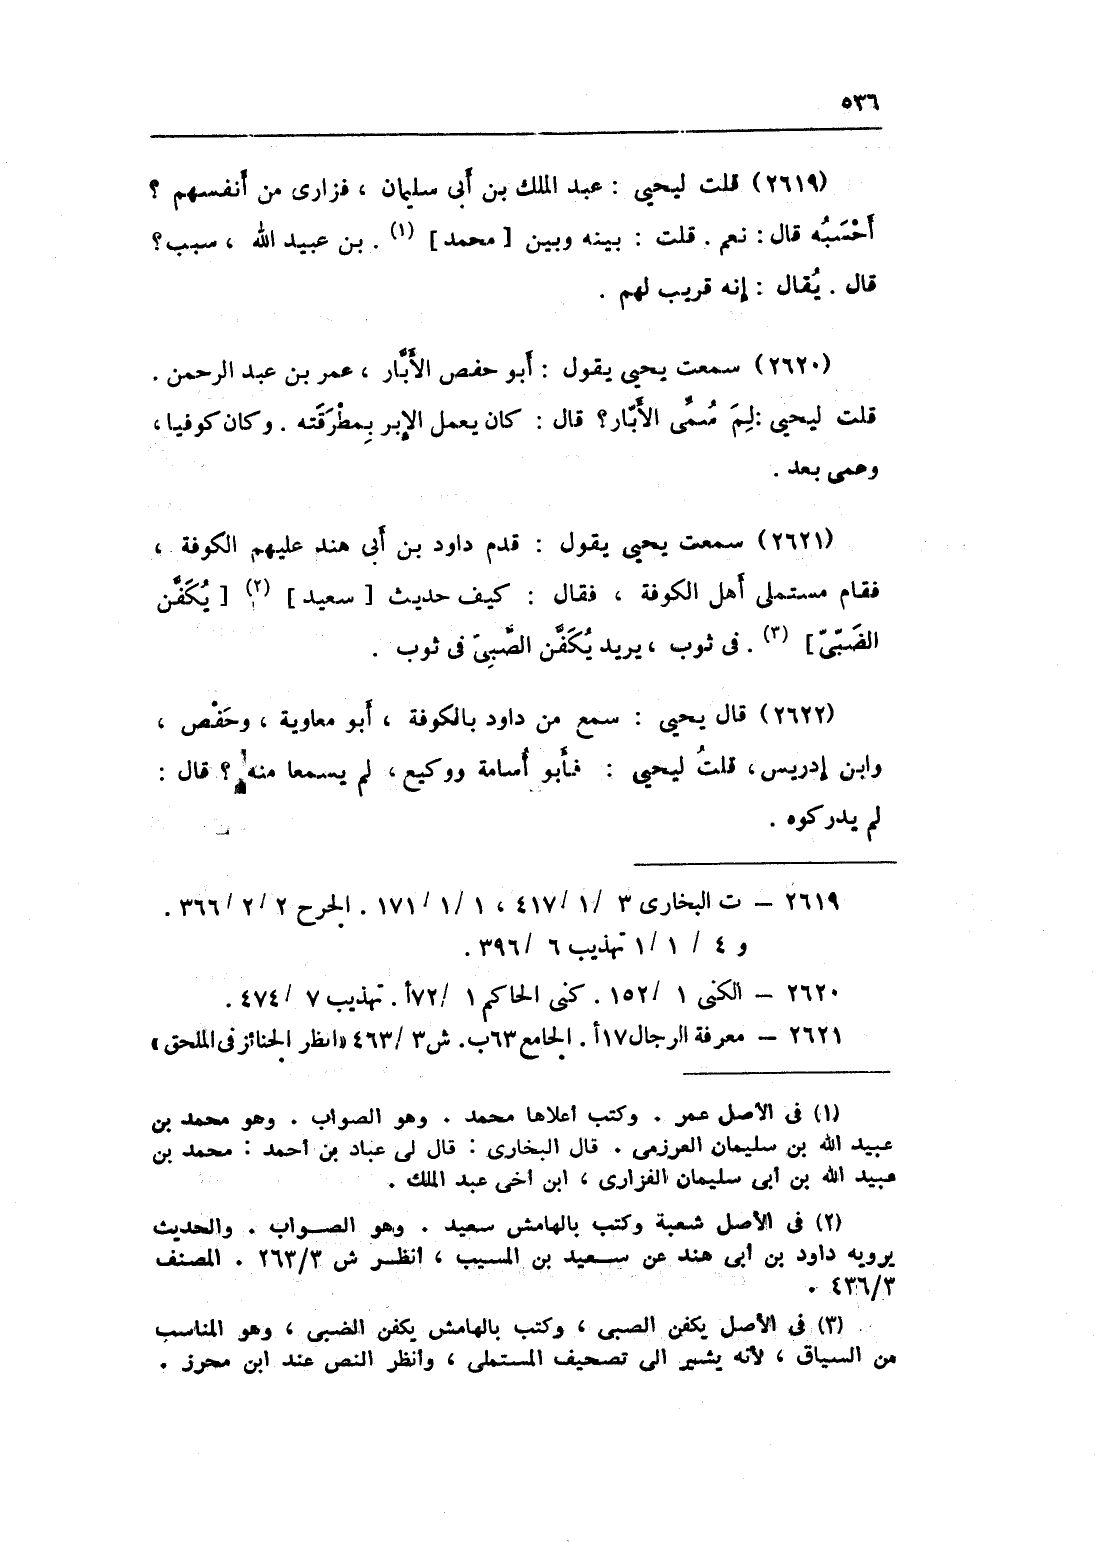 ٥٣٦
(٢٦١٩) قلت ليحيى : عبد الملك بن أبى سليمان ، فزارى من أنفسهم ؟
أَحْسَبُه قال : نعم . قلت : بينه وبين [ محمد ] (١) . بن عبيد الله ، سبب ؟
قال . يُقال : إنه قريب لهم .
(٢٦٢٠) سمعت يحيى يقول : أبو حفص الأَبَّار ، عمر بن عبد الرحمن .
قلت ليحيى : لِمَ سُمِّى الأَبّار ؟ قال : كان يعمل الإبر بِمطْرَقَته . وكان كوفيا ،
وعمى بعد .
(٢٦٢١) سمعت يحيى يقول : قدم داود بن أبى هند عليهم الكوفة ،
فقام مستملى أهل الكوفة ، فقال : كيف حديث [ سعيد ] (٢) [ يُكَفَّن
الضَبّىّ ] (٣) . فى ثوب ، يريد يُكَفَّن الصَّبِىّ فى ثوب .
(٢٦٢٢) قال يحيى : سمع من داود بالكوفة ، أبو معاوية ، وحَفْص ،
وابن إدريس ، قلتُ ليحيى : فأبو أُسامة ووكيع ، لم يسمعا منه ؟ قال :
لم يدركوه .
٢٦١٩ – ت البخارى ٣ /١/ ٤١٧ ، ١ /١/ ١٧١ . الجرح ٢ /٢/ ٣٦٦ .
و ٤ / ١ /١ تهذيب ٦ /٣٩٦ .
٢٦٢٠ – الكنى ١ /١٥٢ . كنى الحاكم ١ /٧٢أ . تهذيب ٧ /٤٧٤ .
٢٦٢١ – معرفة الرجال ١٧أ . الجامع ٦٣ب . ش ٣ /٤٦٣ «انظر الجنائز فى الملحق»
(١) فى الأصل عمر . وكتب أعلاها محمد . وهو الصواب . وهو محمد بن
عبيد الله بن سليمان العرزمى . قال البخارى : قال لى عباد بن أحمد : محمد بن
عبيد الله بن أبى سليمان الفزارى ، ابن أخى عبد الملك .
(٢) فى الأصل شعبة وكتب بالهامش سعيد . وهو الصواب . والحديث
يرويه داود بن أبى هند عن سعيد بن المسيب ، أنظر ش ٢٦٣/٣ . المصنف
٤٣٦/٣ .
(٣) فى الأصل يكفن الصبى ، وكتب بالهامش يكفن الضبى ، وهو المناسب
من السياق ، لأنه يشير الى تصحيف المستملى ، وأنظر النص عند ابن محرز .